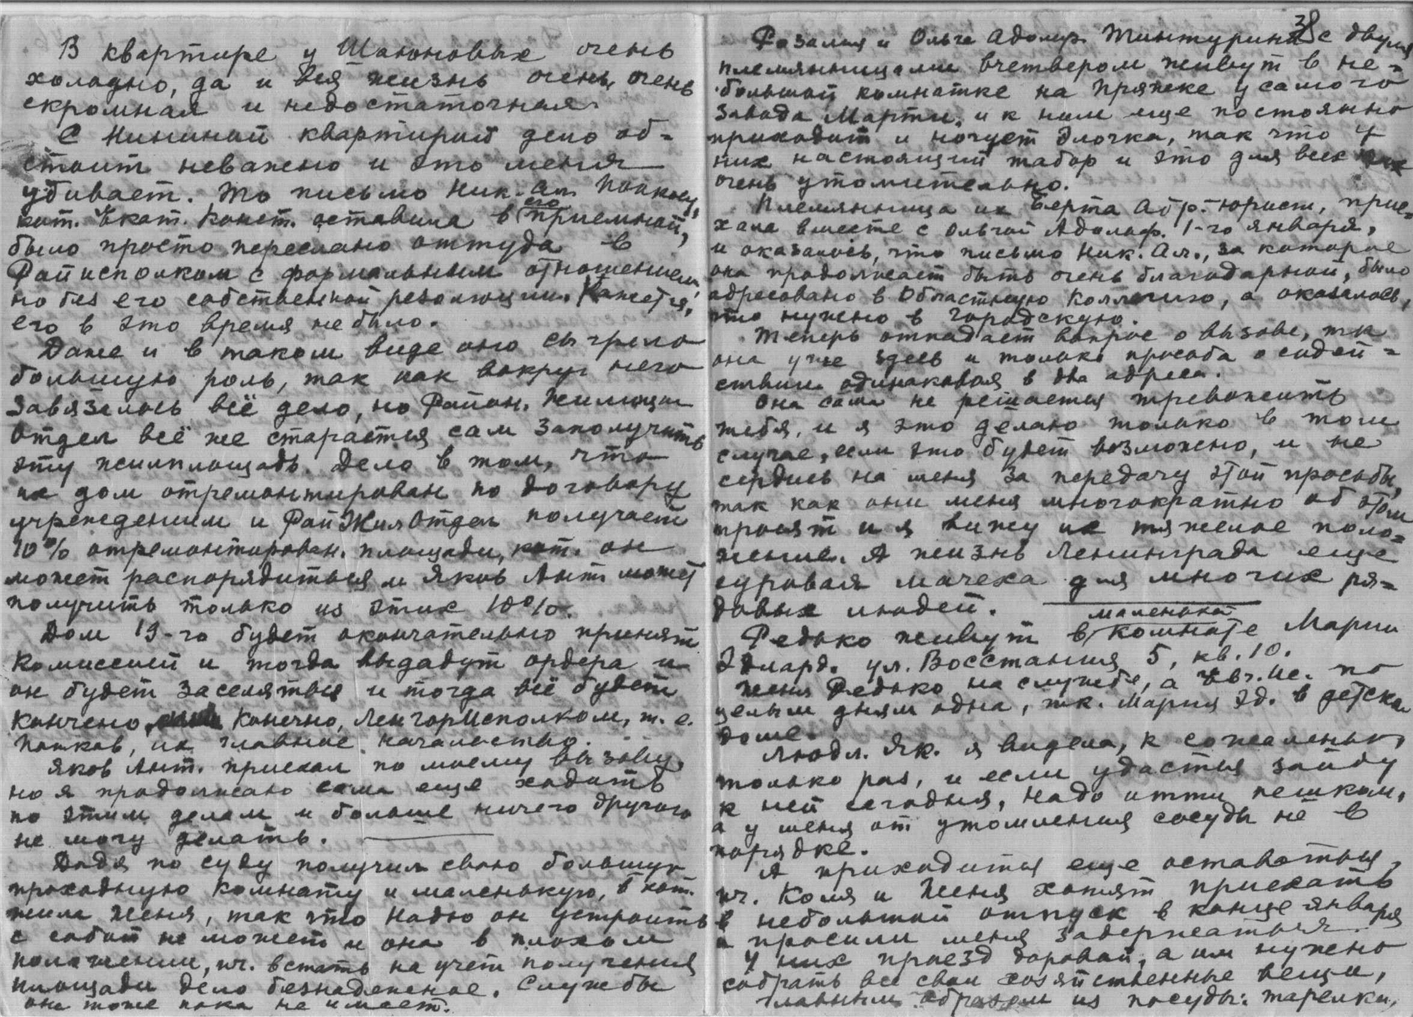 В квартире у Шапоновых очень
холадно, да и вся жизнь очень, очень
скромная и недостаточная.
С Нининой квартирой дело об-
стоит неважно и это меня
убивает. То письмо Ник. Ал.
кот. Екат. Конст. оставила в его приемной,
было просто переслано оттуда в
Райисполком с формальным отношением,
но без его собственной резолюции. Кажется,
его в это время не было.
Даже и в таком виде оно сыграло
большую роль, так как вокруг него
завязалось всё дело, но Район. Жилищн
отдел всё же старается сам заполучить
эту жилплощадь. Дело в том, что
их дом отремонтирован по договору
учреждением и РайЖилОтдел получает
10% отремонтирован. площади, кот. он
может распорядиться и Яков Ант. может
получить только из этих 10%.
Дом 19-го будет окончательно принят
комиссией и тогда выдадут ордера и
он будет заселяться и тогда всё будет
кончено, конечно, ЛенгорИсполком, т. е.
Попков, их главное начальство.
Яков Ант. приехал по моему вызову,
но я продолжаю сама еще ходить
по этим делам и больше ничего другого
не могу делать.
Дядя по суду получил свою большую
проходную комнату и маленькую, в кот.
жила Женя, так что Надю он устроить
с собой не может и она в плохом
положении, пч. встать на учет получения
площади дело безнадежное. Службы
она тоже пока не имеет.
38
Розалия и Ольга Адольф. Тинтурины с двумя
племянницами вчетвером живут в не-
большой комнатке на Пряжке у самого
завода Марти, и к ним еще постоянно
приходит и ночует Элочка, так что у
них настоящий табор и это для всех
очень утомительно.
Племянница их Берта Абр. юрист, прие-
хала вместе с Ольгой Адольф. 1-го января,
и оказалось, что письмо Ник. Ал., за которое
она продолжает быть очень благодарной, было
адресовано в Областную Коллегию, а оказалось,
что нужно в городскую.
Теперь отпадает вопрос о вызове, тк
она уже здесь и только просьба о содей-
ствии одинаковая в два адреса.
Она сама не решается тревожить
тебя, и я это делаю только в том
случае, если это будет возможно, и не
сердись на меня за передачу этой просьбы,
так как они меня многократно об этом
просят и я вижу их тяжелое поло-
жение. А жизнь Ленинграда еще
суровая мачеха для многих ря-
довых людей.
Редько живут в маленькой комнате Марии
Эдуард. ул. Восстания 5, кв. 10.
Женя Редько на службе, а Евг. Ис. по
целым дням одна, тк. Мария Эд. в детском
доме.
Людл. Як. я видела, к сожаленью,
только раз, и если удастся зайду
к ней сегодня, надо итти пешком,
а у меня от утомления сосуды не в
порядке.
А приходится еще оставаться,
пч. Коля и Женя хотят приехать
в небольшой отпуск в конце января
и просили меня задержаться.
У них проезд даровой, а им нужно
собрать все свои хозяйственные вещи,
главным образом из посуды: тарелки,